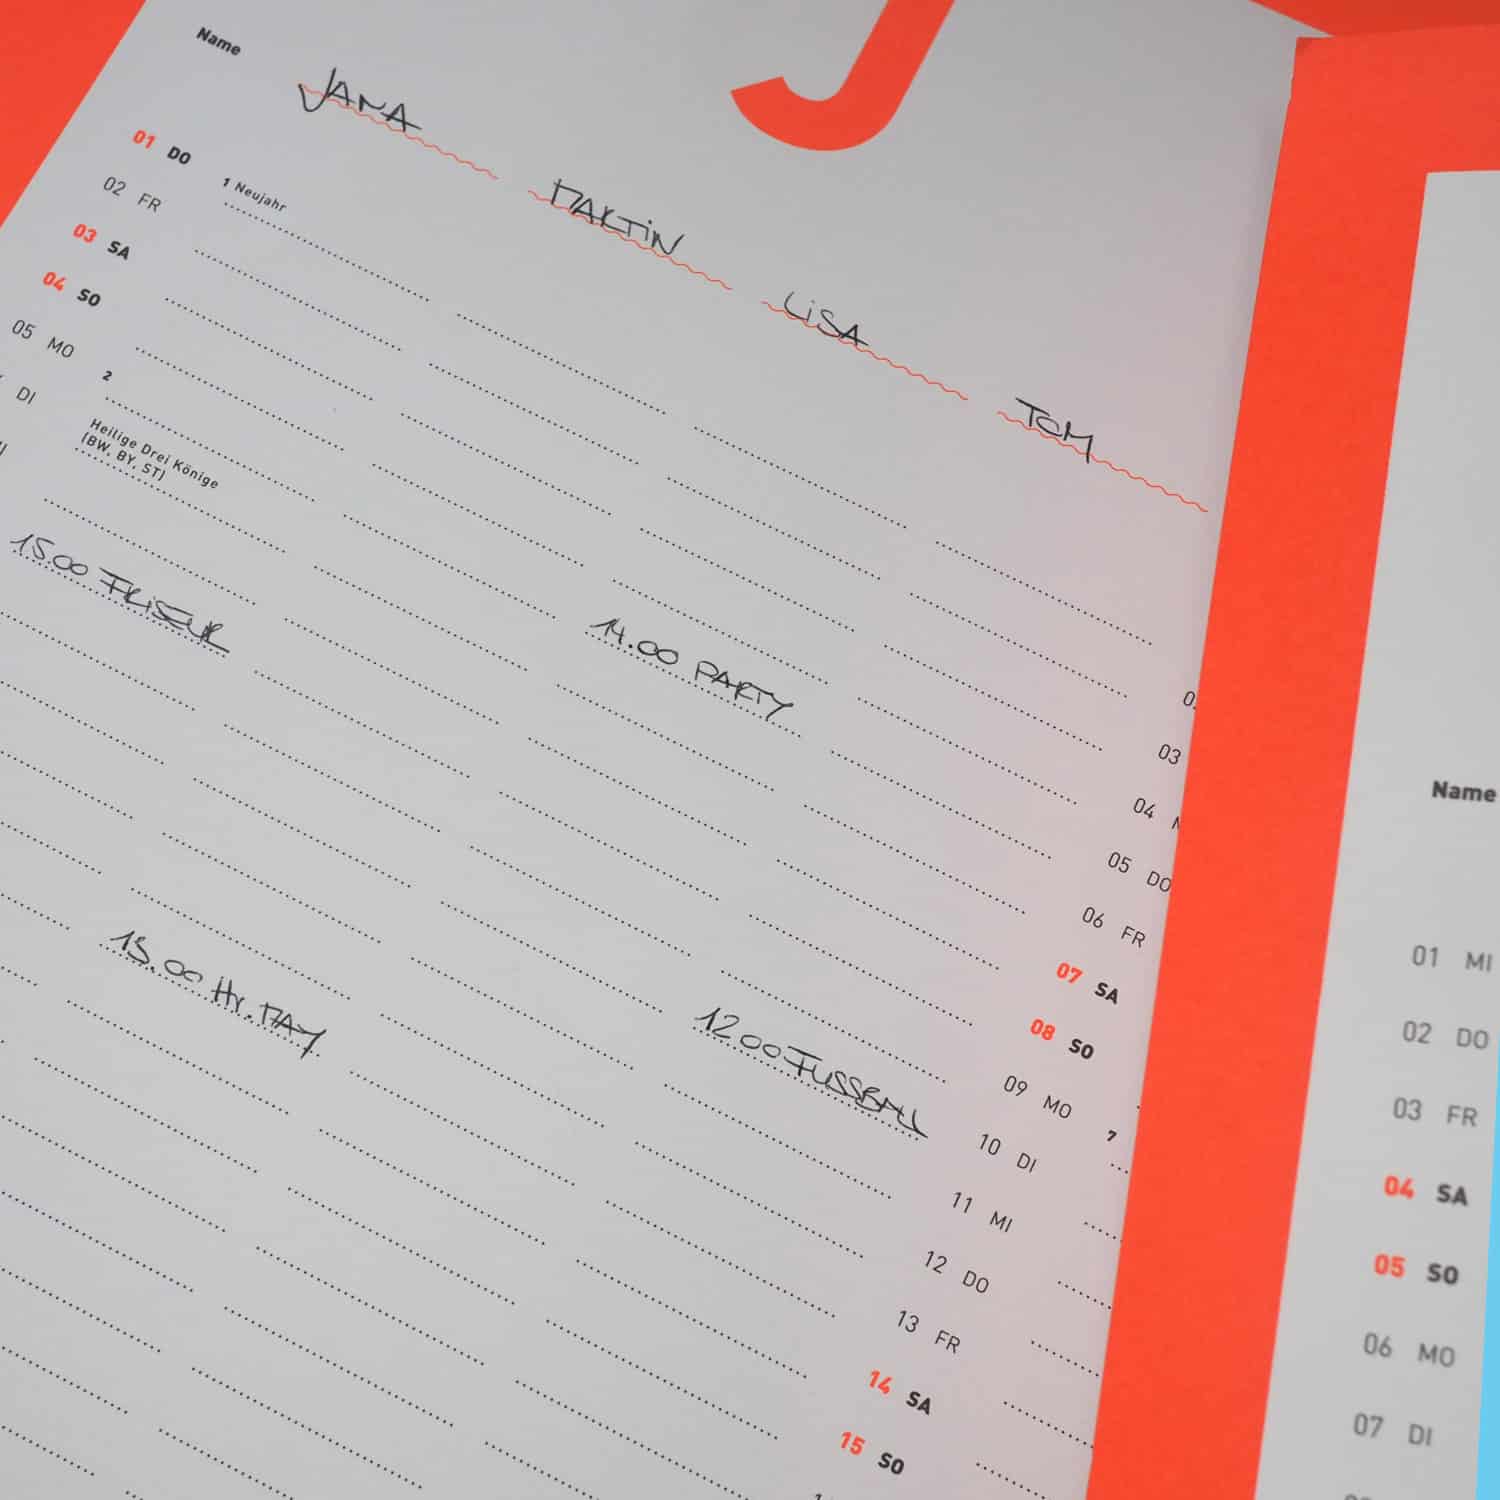 J
Name
JANA MARTiN LiSA TOM
01 DO 1 Neujahr
02 FR
03 SA
04 SO
05 MO 2
DI Heilige Drei Könige
(BW, BY, ST)
15.00 FRiSEUR
14.00 PARTY
13.00 Hr. MAY
12.00 FUSSBALL
03
04
05 DO
06 FR
07 SA
08 SO
09 MO 7
10 DI
11 MI
12 DO
13 FR
14 SA
15 SO
Name
01 MI
02 DO
03 FR
04 SA
05 SO
06 MO
07 DI